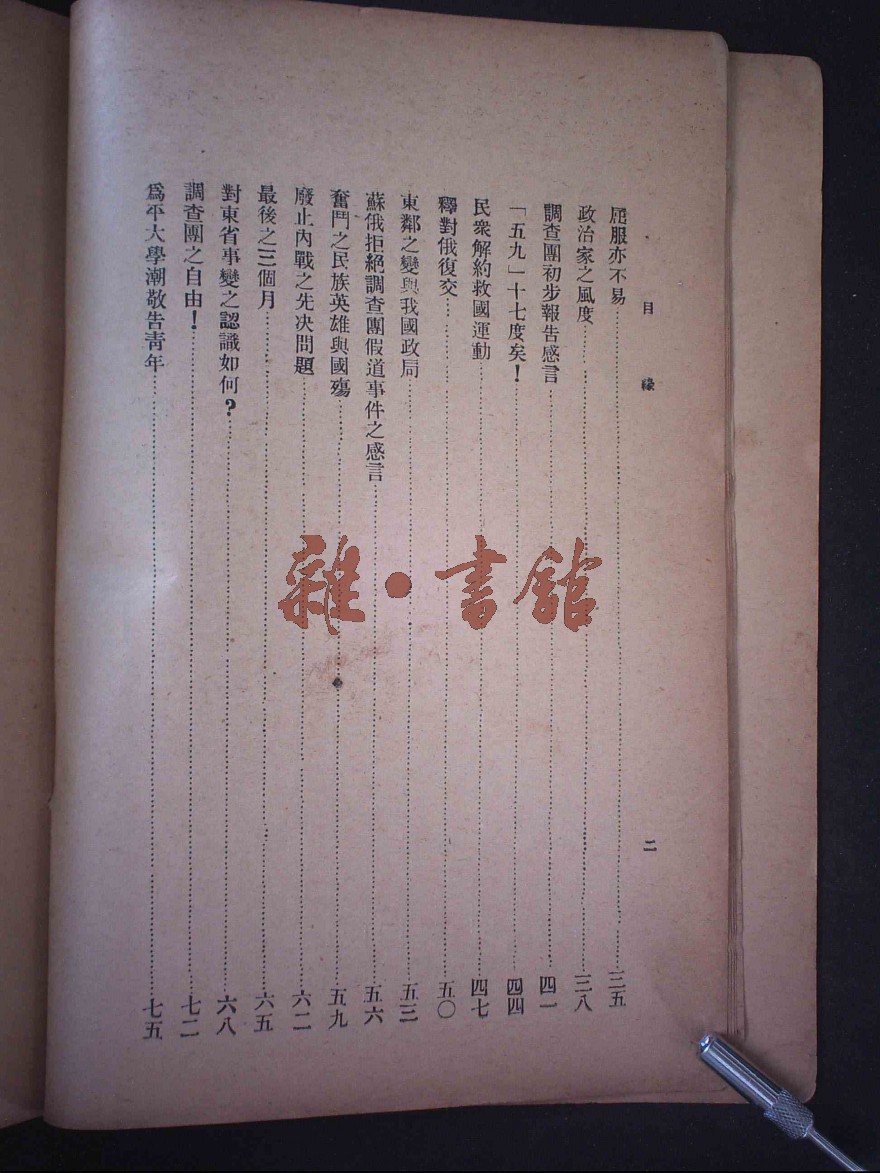 目錄
二
屈服亦不易……三五
政治家之風度……三八
調查團初步報告感言……四一
「五九」十七度矣！……四四
民衆解約救國運動……四七
釋對俄復交……五〇
東鄰之變與我國政局……五三
蘇俄拒絕調查團假道事件之感言……五六
奮鬥之民族英雄與國殤……五九
廢止內戰之先决問題……六二
最後之三個月……六五
對東省事變之認識如何？……六八
調查團之自由！……七二
爲平大學潮敬告靑年……七五
雜·書館